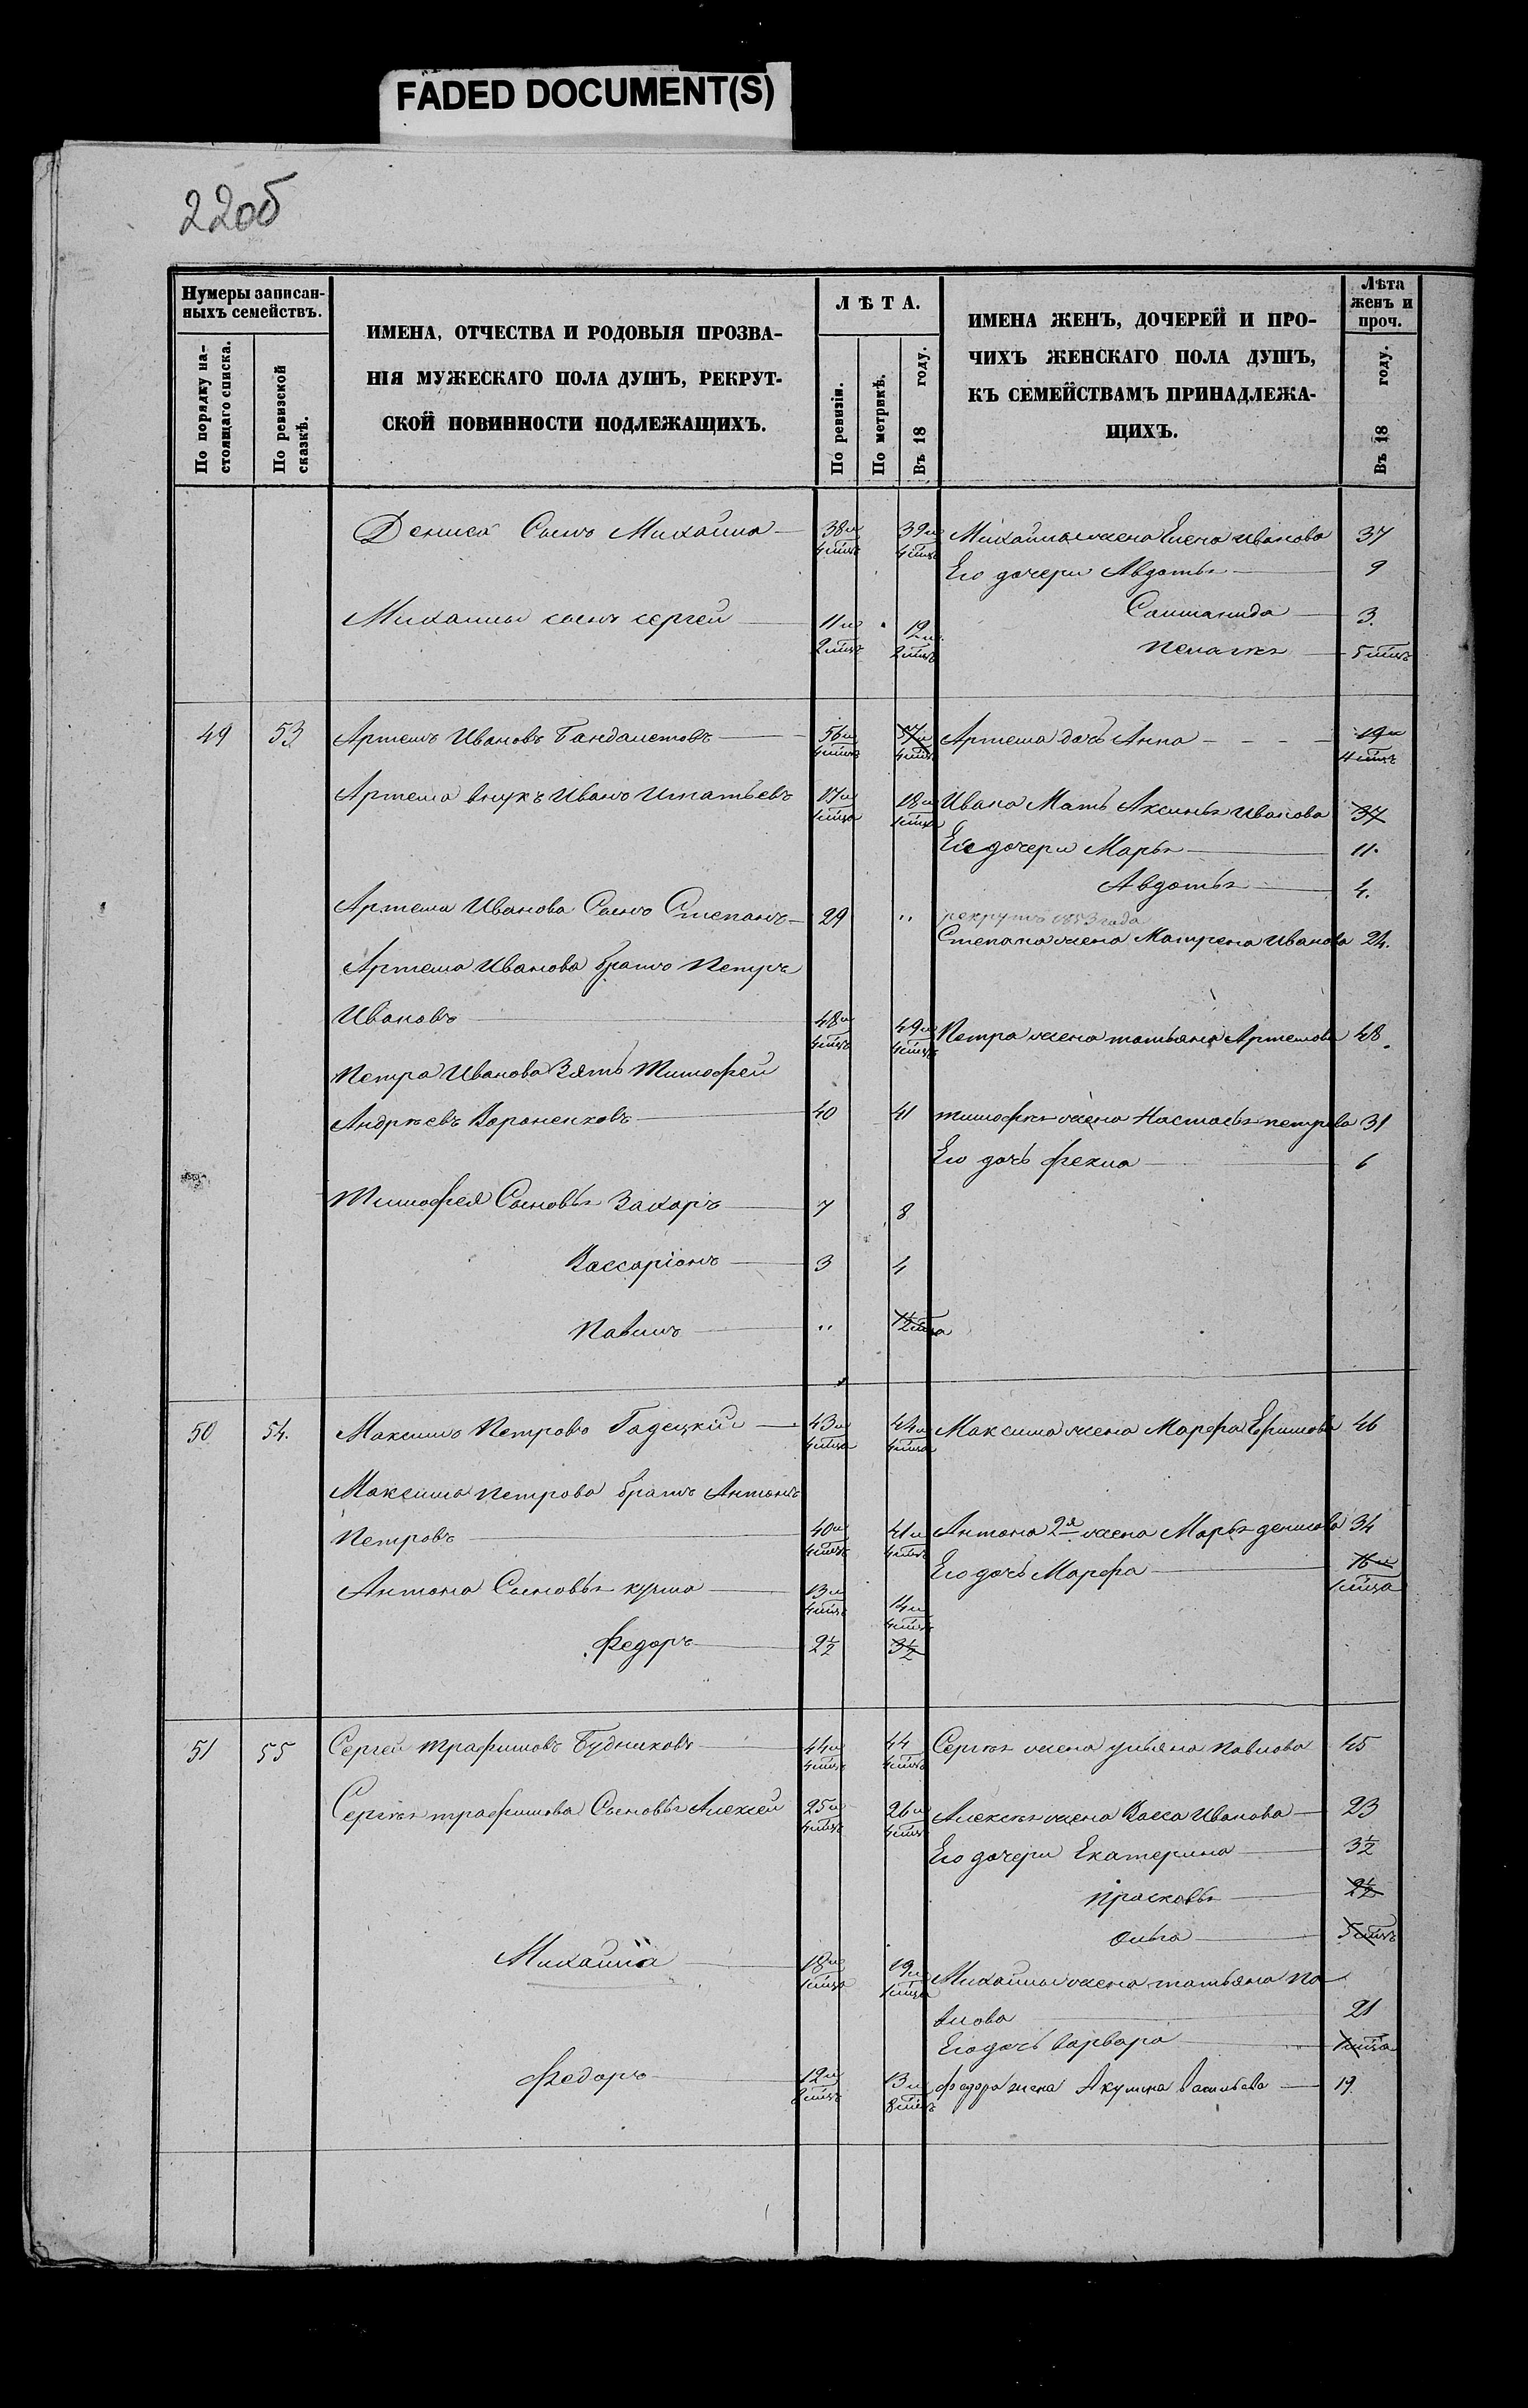 FADED DOCUMENT(S)
22об
Нумеры записан-
ныхъ семействъ.
По порядку на-
стоящаго списка.
По ревизской
сказкѣ.
ИМЕНА, ОТЧЕСТВА И РОДОВЫЯ ПРОЗВА-
НІЯ МУЖЕСКАГО ПОЛА ДУШЪ, РЕКРУТ-
СКОЙ ПОВИННОСТИ ПОДЛЕЖАЩИХЪ.
ЛѢТА.
По ревизіи.
По метрикѣ.
Въ 18 году.
ИМЕНА ЖЕНЪ, ДОЧЕРЕЙ И ПРО-
ЧИХЪ ЖЕНСКАГО ПОЛА ДУШЪ,
КЪ СЕМЕЙСТВАМЪ ПРИНАДЛЕЖА-
ЩИХЪ.
Лѣта
женъ и
проч.
Въ 18 году.
Дениса Сынъ Михайла 38и 39и Михайла жена Елена Иванова 37
4мцъ 4мцъ
Его дочери Авдотья 9
Михайлы сынъ сергей 11и 12и Салманида 3.
2мцъ 2мцъ
Пелагѣя 5мцъ
49 53 Артемъ Ивановъ Бандалетовъ 56и 57и Артема дочь Анна 19и
4мцъ 4мцъ 4мцъ
Артема внукъ Иванъ Игнатьевъ 17и 18и Ивана Мать Аксинья Иванова 37
1мца 1мца
Ее дочери Марья 11.
Авдотья 4.
Артема Иванова Сынъ Степанъ 29 " рекрутъ 1853 года
Степана жена Матрена Иванова 24.
Артема Иванова братъ Петръ
Ивановъ 48и 49и Петра жена татьяна Артемова 48.
4мцъ 4мцъ
Петра Иванова Зять Тимофей
Андрѣевъ Вороненковъ 40 41 тимофѣя жена Настасья петрова 31
Его дочь фекла 6
Тимофея Сыновья Захаръ 7 8
Вассаріонъ 3 4
Павелъ " 1½мца
50 54. Максимъ Петровъ Гадецкій 43и 44и Максима жена Марфа Ефимова 46
4мца 4мца
Максима Петрова братъ Антонъ
Петровъ 40и 41и Антона 2я жена Марья денисова 34
4мцъ 4мцъ
Его дочь Марфа 16и
1мца
Антона Сыновья кузма 13и 14и
4мцъ 4мцъ
федоръ 2½ 3½
51 55 Сергей трафимовъ Будниковъ 44и 44 Сергѣя жена ульяна павлова 45
4мцъ 4мцъ
Сергѣя трафимова Сыновья Алексей 25и 26и Алексѣя жена Васса Иванова 23
4мцъ 4мцъ
Его дочери Екатерина 3½
прасковья 2½
ольга 5мцъ
Михайла 18и 19и Михайлы жена татьяна па
1мца 1мца
влова 21
Его дочь варвара 1мца
федоръ 12и 13и федора жена Акулина васильева 19.
8мцъ 8мцъ